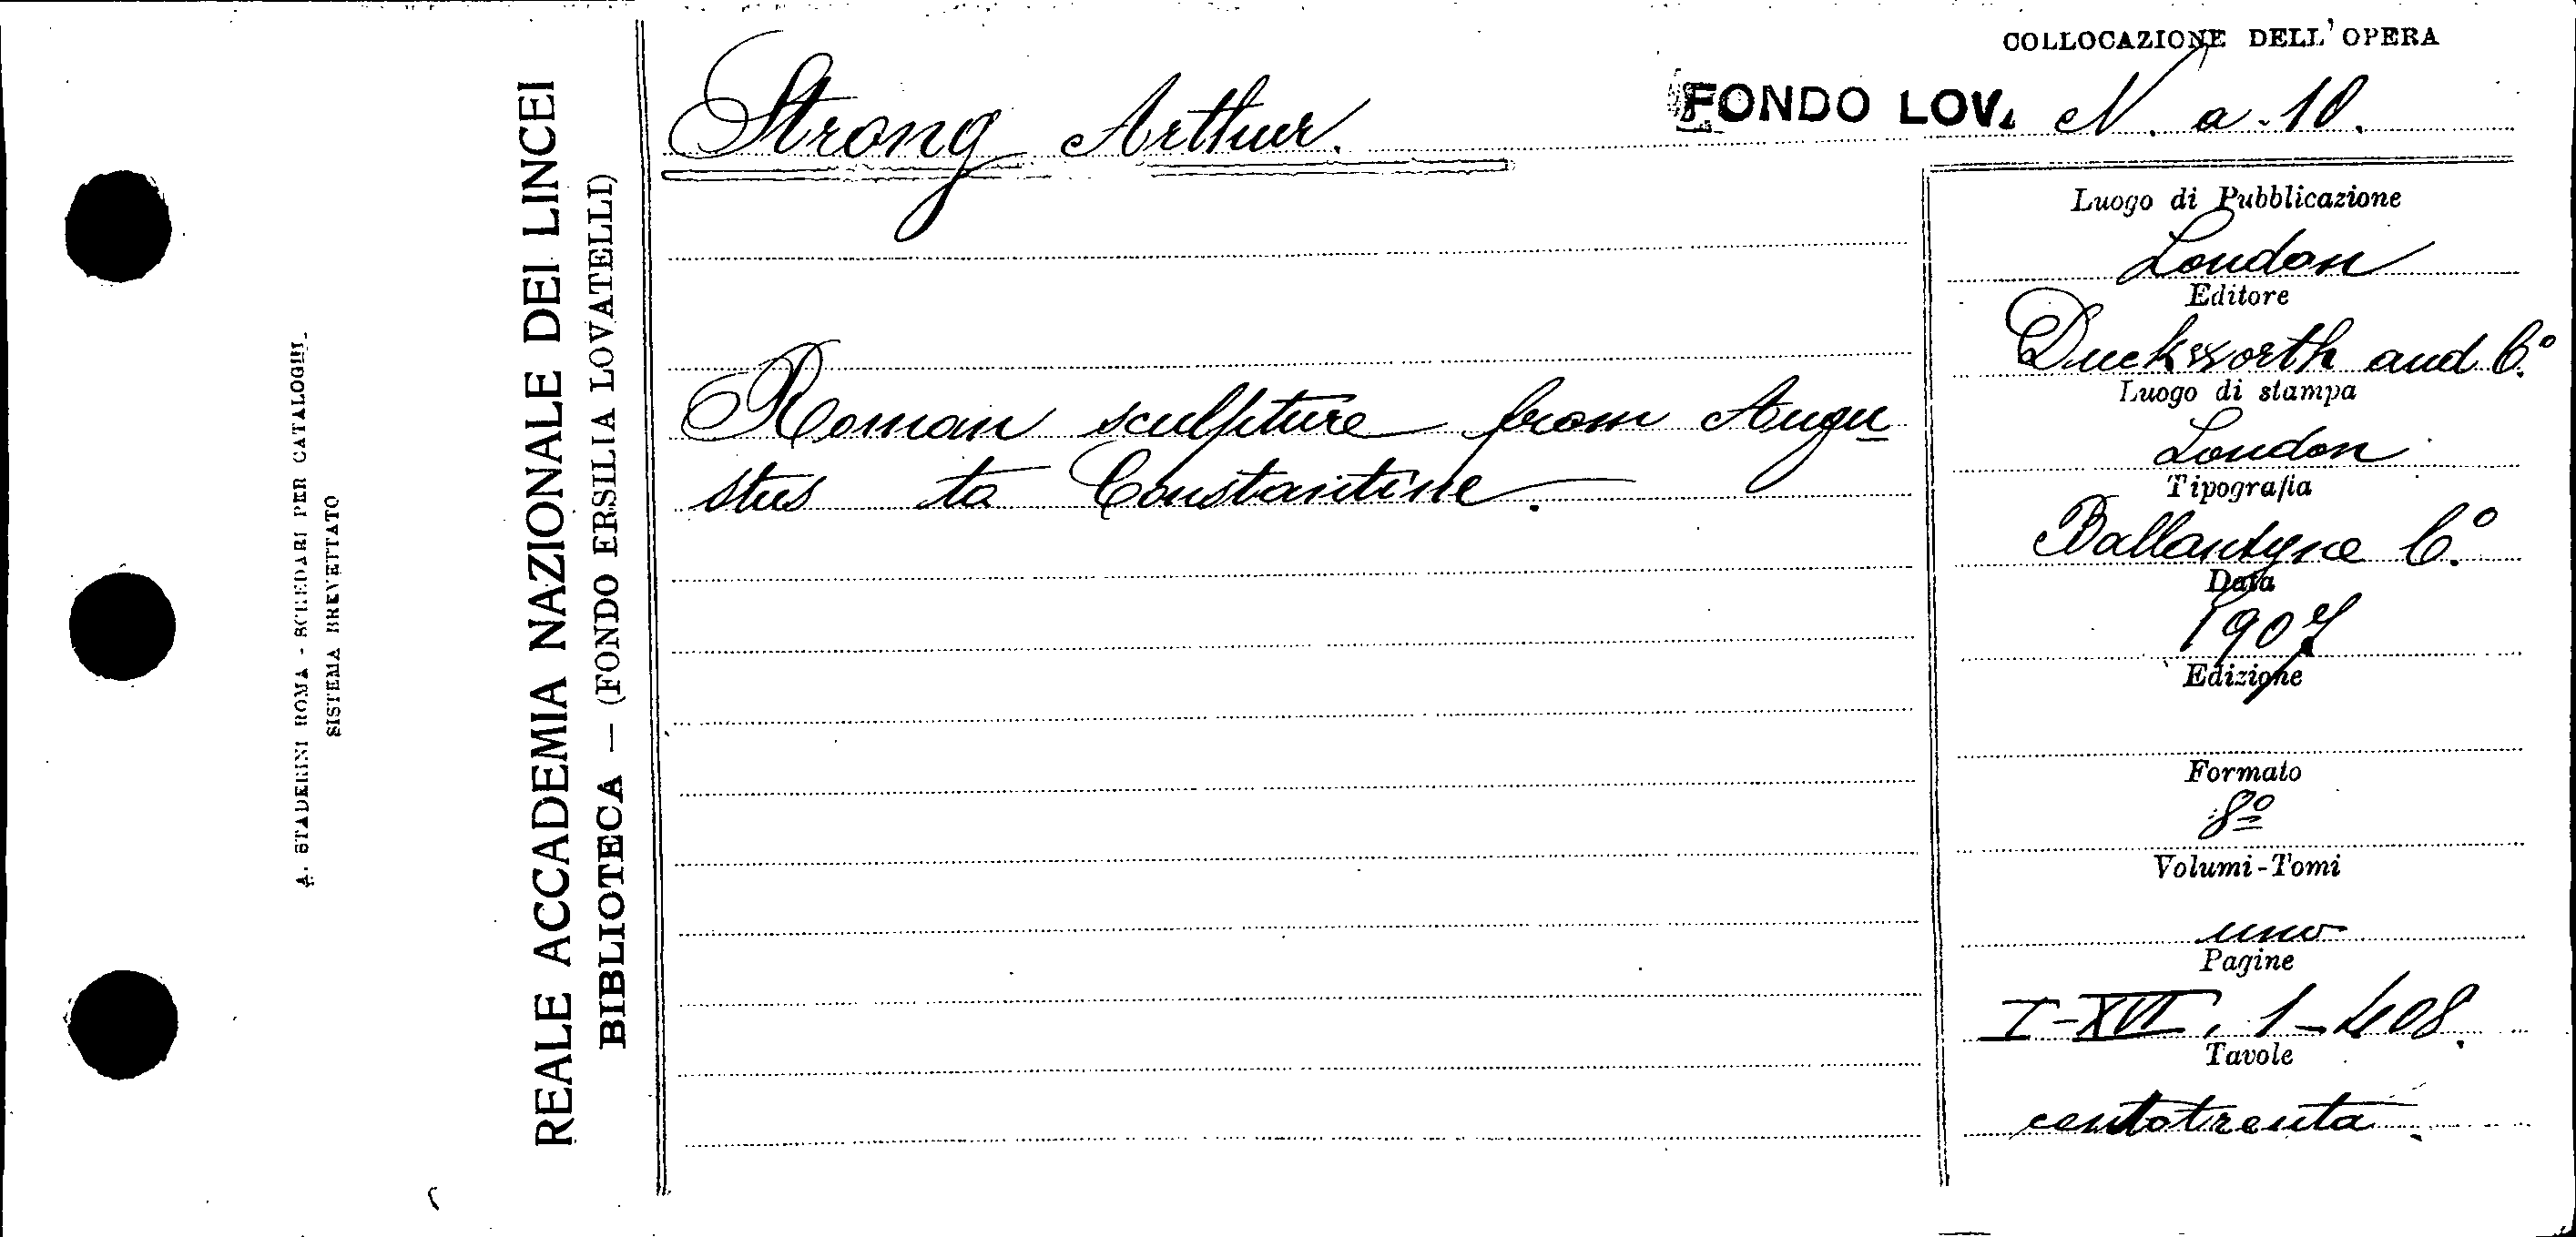 COLLOCAZIONE DELL' OPERA
FONDO LOV. N. a. 10.
Strong Arthur.
Roman sculpture from Augu
stus to Constantine.
Luogo di Pubblicazione
London
Editore
Duckworth and C.º
Luogo di stampa
London
Tipografia
Ballantyne C.º
Data
1907
Edizione
Formato
8º
Volumi-Tomi
uno
Pagine
I-XVI, 1-408.
Tavole
centotrenta.
REALE ACCADEMIA NAZIONALE DEI LINCEI
BIBLIOTECA — (FONDO ERSILIA LOVATELLI)
A. STADERINI ROMA - SCHEDARI PER CATALOGHI.
SISTEMA BREVETTATO